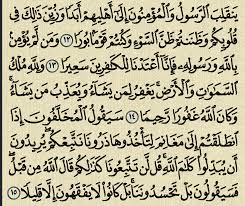 ينقلب الرسول والمؤمنون إلى أهليهم أبدا وزين ذلك في
قلوبكم وظننتم ظن السوء وكنتم قوما بورا ١٢ ومن لم يؤمن
بالله ورسوله فإنا أعتدنا للكافرين سعيرا ١٣ ولله ملك
السماوات والأرض يغفر لمن يشاء ويعذب من يشاء
وكان الله غفورا رحيما ١٤ سيقول المخلفون إذا
انطلقتم إلى مغانم لتأخذوها ذرونا نتبعكم يريدون
أن يبدلوا كلام الله قل لن تتبعونا كذلكم قال الله من قبل
فسيقولون بل تحسدوننا بل كانوا لا يفقهون إلا قليلا ١٥